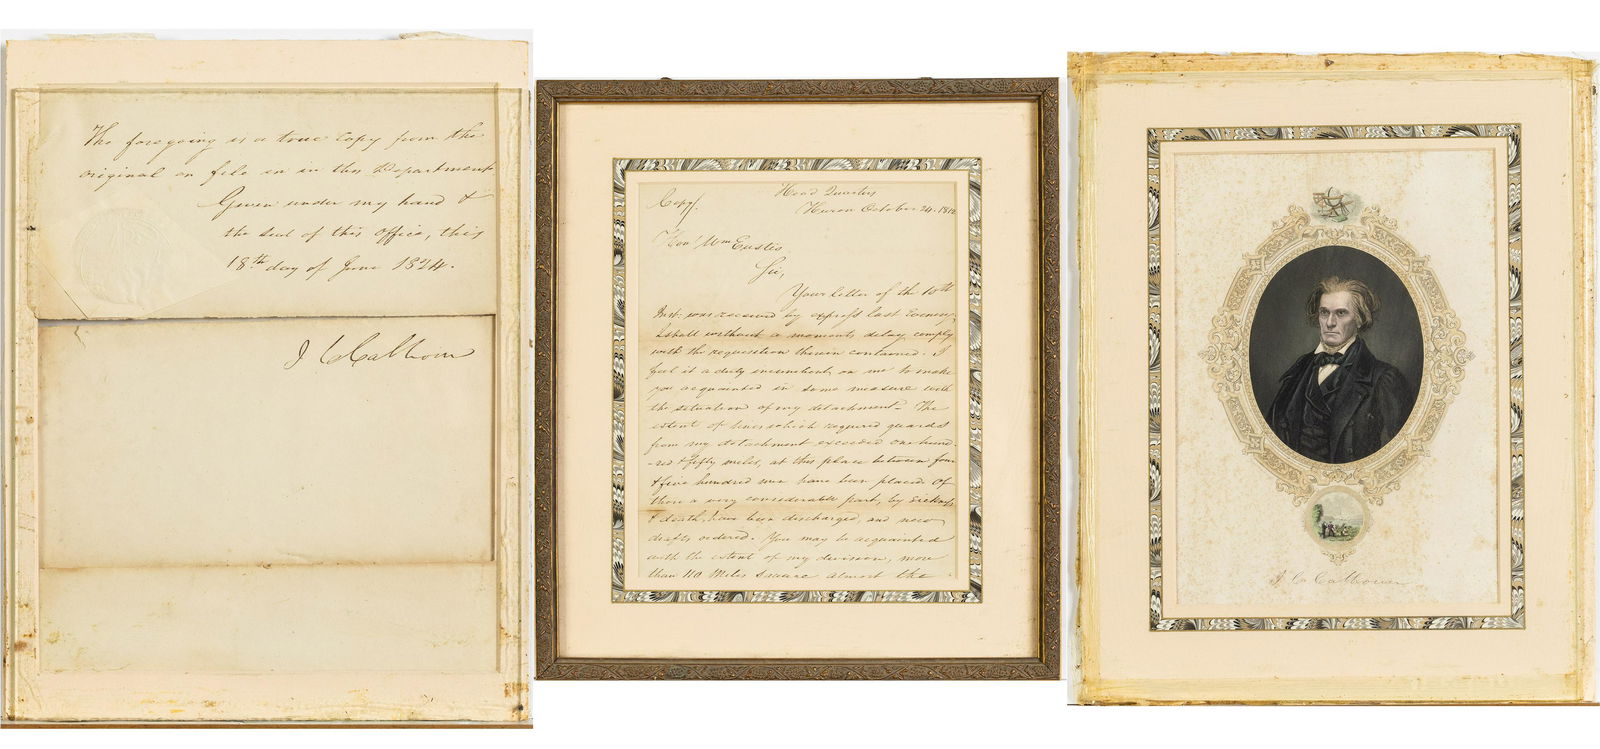 The foregoing is a true Copy from the
original on file in in this Department
Given under my hand &
the seal of this Office, this
18th day of June 1824.
J. C. Calhoun
Copy.
Head Quarters
Huron October 24. 1812
Hon Wm Eustis
Sir,
Your letter of the 10th
Inst. was received by express last Evening,
I shall without a moments delay comply
with the requisition therein contained. I
feel it a duty incumbent, on me to make
you acquainted in some measure with
the situation of my detachment. The
extent of lines which required guards
from my detachment exceeded one hund-
-red & fifty miles, at this place between four
& five hundred men have been placed Of
these a very considerable part, by Sickness
& death, have been discharged, and new
drafts ordered. You may be acquainted
with the extent of my division, more
than 110 Miles square almost the
J C Calhoun